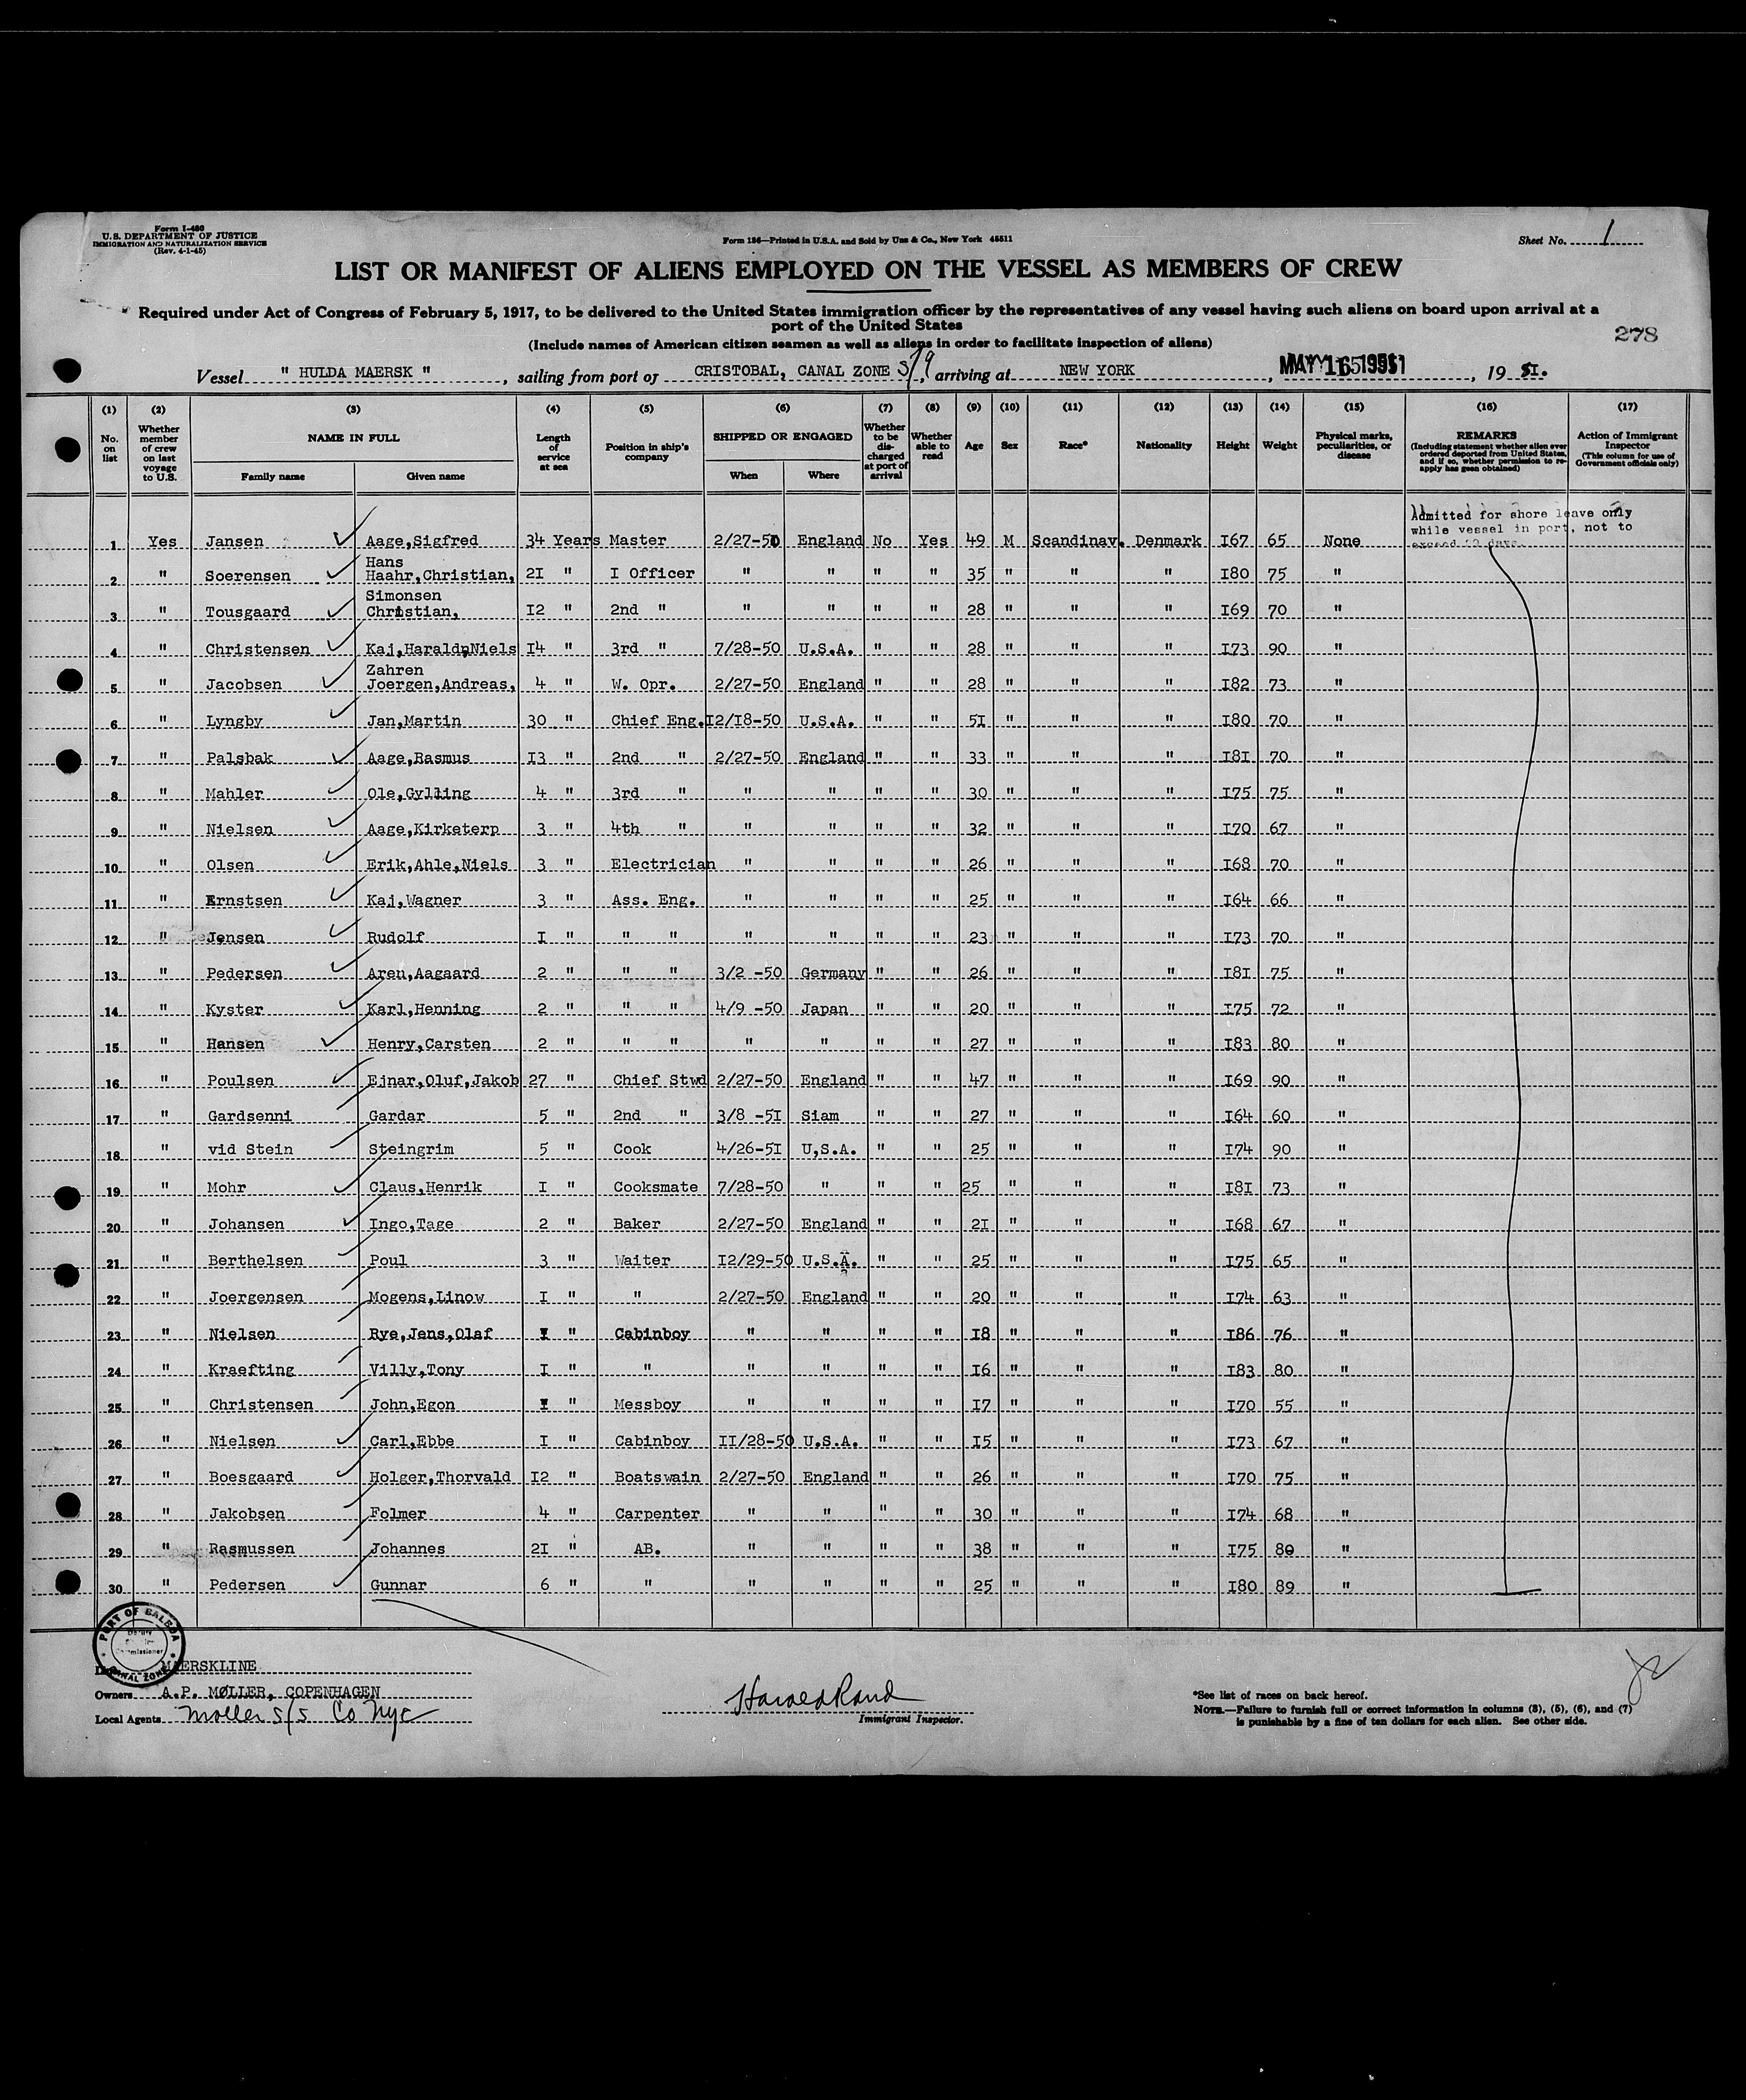 Form I-480
U.S. DEPARTMENT OF JUSTICE
IMMIGRATION AND NATURALIZATION SERVICE
(Rev. 4-1-45)
Form 136—Printed in U.S.A. and Sold by Unz & Co., New York 45511
Sheet No. 1
LIST OR MANIFEST OF ALIENS EMPLOYED ON THE VESSEL AS MEMBERS OF CREW
Required under Act of Congress of February 5, 1917, to be delivered to the United States immigration officer by the representatives of any vessel having such aliens on board upon arrival at a
port of the United States
278
(Include names of American citizen seamen as well as aliens in order to facilitate inspection of aliens)
Vessel " HULDA MAERSK " , sailing from port of CRISTOBAL, CANAL ZONE 5/9, arriving at NEW YORK , MAY 1951 , 19 51.
(1) No. on list (2) Whether member of crew on last voyage to U.S. (3) NAME IN FULL Family name Given name (4) Length of service at sea (5) Position in ship's company (6) SHIPPED OR ENGAGED When Where (7) Whether to be discharged at port of arrival (8) Whether able to read (9) Age (10) Sex (11) Race* (12) Nationality (13) Height (14) Weight (15) Physical marks, peculiarities, or disease (16) REMARKS (Including statement whether alien ever ordered deported from United States, and if so, whether permission to re-apply has been obtained) (17) Action of Immigrant Inspector (This column for use of Government officials only)
Admitted for shore leave only
while vessel in port, not to
exceed 29 days.
1 Yes Jansen Aage,Sigfred 34 Years Master 2/27-50 England No Yes 49 M Scandinav. Denmark I67 65 None
Hans
2 " Soerensen Haahr,Christian, 2I " I Officer " " " " 35 " " " I80 75 "
Simonsen
3 " Tousgaard Christian, I2 " 2nd " " " " " 28 " " " I69 70 "
4 " Christensen Kaj,Harald,Niels I4 " 3rd " 7/28-50 U.S.A. " " 28 " " " I73 90 "
Zahren
5 " Jacobsen Joergen,Andreas, 4 " W. Opr. 2/27-50 England " " 28 " " " I82 73 "
6 " Lyngby Jan,Martin 30 " Chief Eng. I2/I8-50 U.S.A. " " 5I " " " I80 70 "
7 " Palsbak Aage,Rasmus I3 " 2nd " 2/27-50 England " " 33 " " " I8I 70 "
8 " Mahler Ole,Gylling 4 " 3rd " " " " " 30 " " " I75 75 "
9 " Nielsen Aage,Kirketerp 3 " 4th " " " " " 32 " " " I70 67 "
10 " Olsen Erik,Ahle,Niels 3 " Electrician " " " " 26 " " " I68 70 "
11 " Ernstsen Kaj,Wagner 3 " Ass. Eng. " " " " 25 " " " I64 66 "
12 " Jensen Rudolf I " " " " " " " 23 " " " I73 70 "
13 " Pedersen Aren,Aagaard 2 " " " 3/2 -50 Germany " " 26 " " " I8I 75 "
14 " Kyster Karl,Henning 2 " " " 4/9 -50 Japan " " 20 " " " I75 72 "
15 " Hansen Henry,Carsten 2 " " " " " " " 27 " " " I83 80 "
16 " Poulsen Ejnar,Oluf,Jakob 27 " Chief Stwd 2/27-50 England " " 47 " " " I69 90 "
17 " Gardsenni Gardar 5 " 2nd " 3/8 -5I Siam " " 27 " " " I64 60 "
18 " vid Stein Steingrim 5 " Cook 4/26-5I U,S.A. " " 25 " " " I74 90 "
19 " Mohr Claus,Henrik I " Cooksmate 7/28-50 " " " 25 " " " I8I 73 "
20 " Johansen Ingo,Tage 2 " Baker 2/27-50 England " " 2I " " " I68 67 "
21 " Berthelsen Poul 3 " Waiter I2/29-50 U.S.A. " " 25 " " " I75 65 "
22 " Joergensen Mogens,Linow I " " 2/27-50 England " " 20 " " " I74 63 "
23 " Nielsen Rye,Jens,Olaf I " Cabinboy " " " " I8 " " " I86 76 "
24 " Kraefting Villy,Tony I " " " " " " I6 " " " I83 80 "
25 " Christensen John,Egon I " Messboy " " " " I7 " " " I70 55 "
26 " Nielsen Carl,Ebbe I " Cabinboy II/28-50 U.S.A. " " I5 " " " I73 67 "
27 " Boesgaard Holger,Thorvald I2 " Boatswain 2/27-50 England " " 26 " " " I70 75 "
28 " Jakobsen Folmer 4 " Carpenter " " " " 30 " " " I74 68 "
29 " Rasmussen Johannes 2I " AB. " " " " 38 " " " I75 80 "
30 " Pedersen Gunnar 6 " " " " " " 25 " " " I80 89 "
PORT OF BALBOA
CANAL ZONE
MAERSKLINE
Owners A.P. MØLLER, COPENHAGEN
Local Agents Moller S/S Co NYC
Harold Rand
Immigrant Inspector.
*See list of races on back hereof.
NOTE.—Failure to furnish full or correct information in columns (3), (5), (6), and (7)
is punishable by a fine of ten dollars for each alien. See other side.